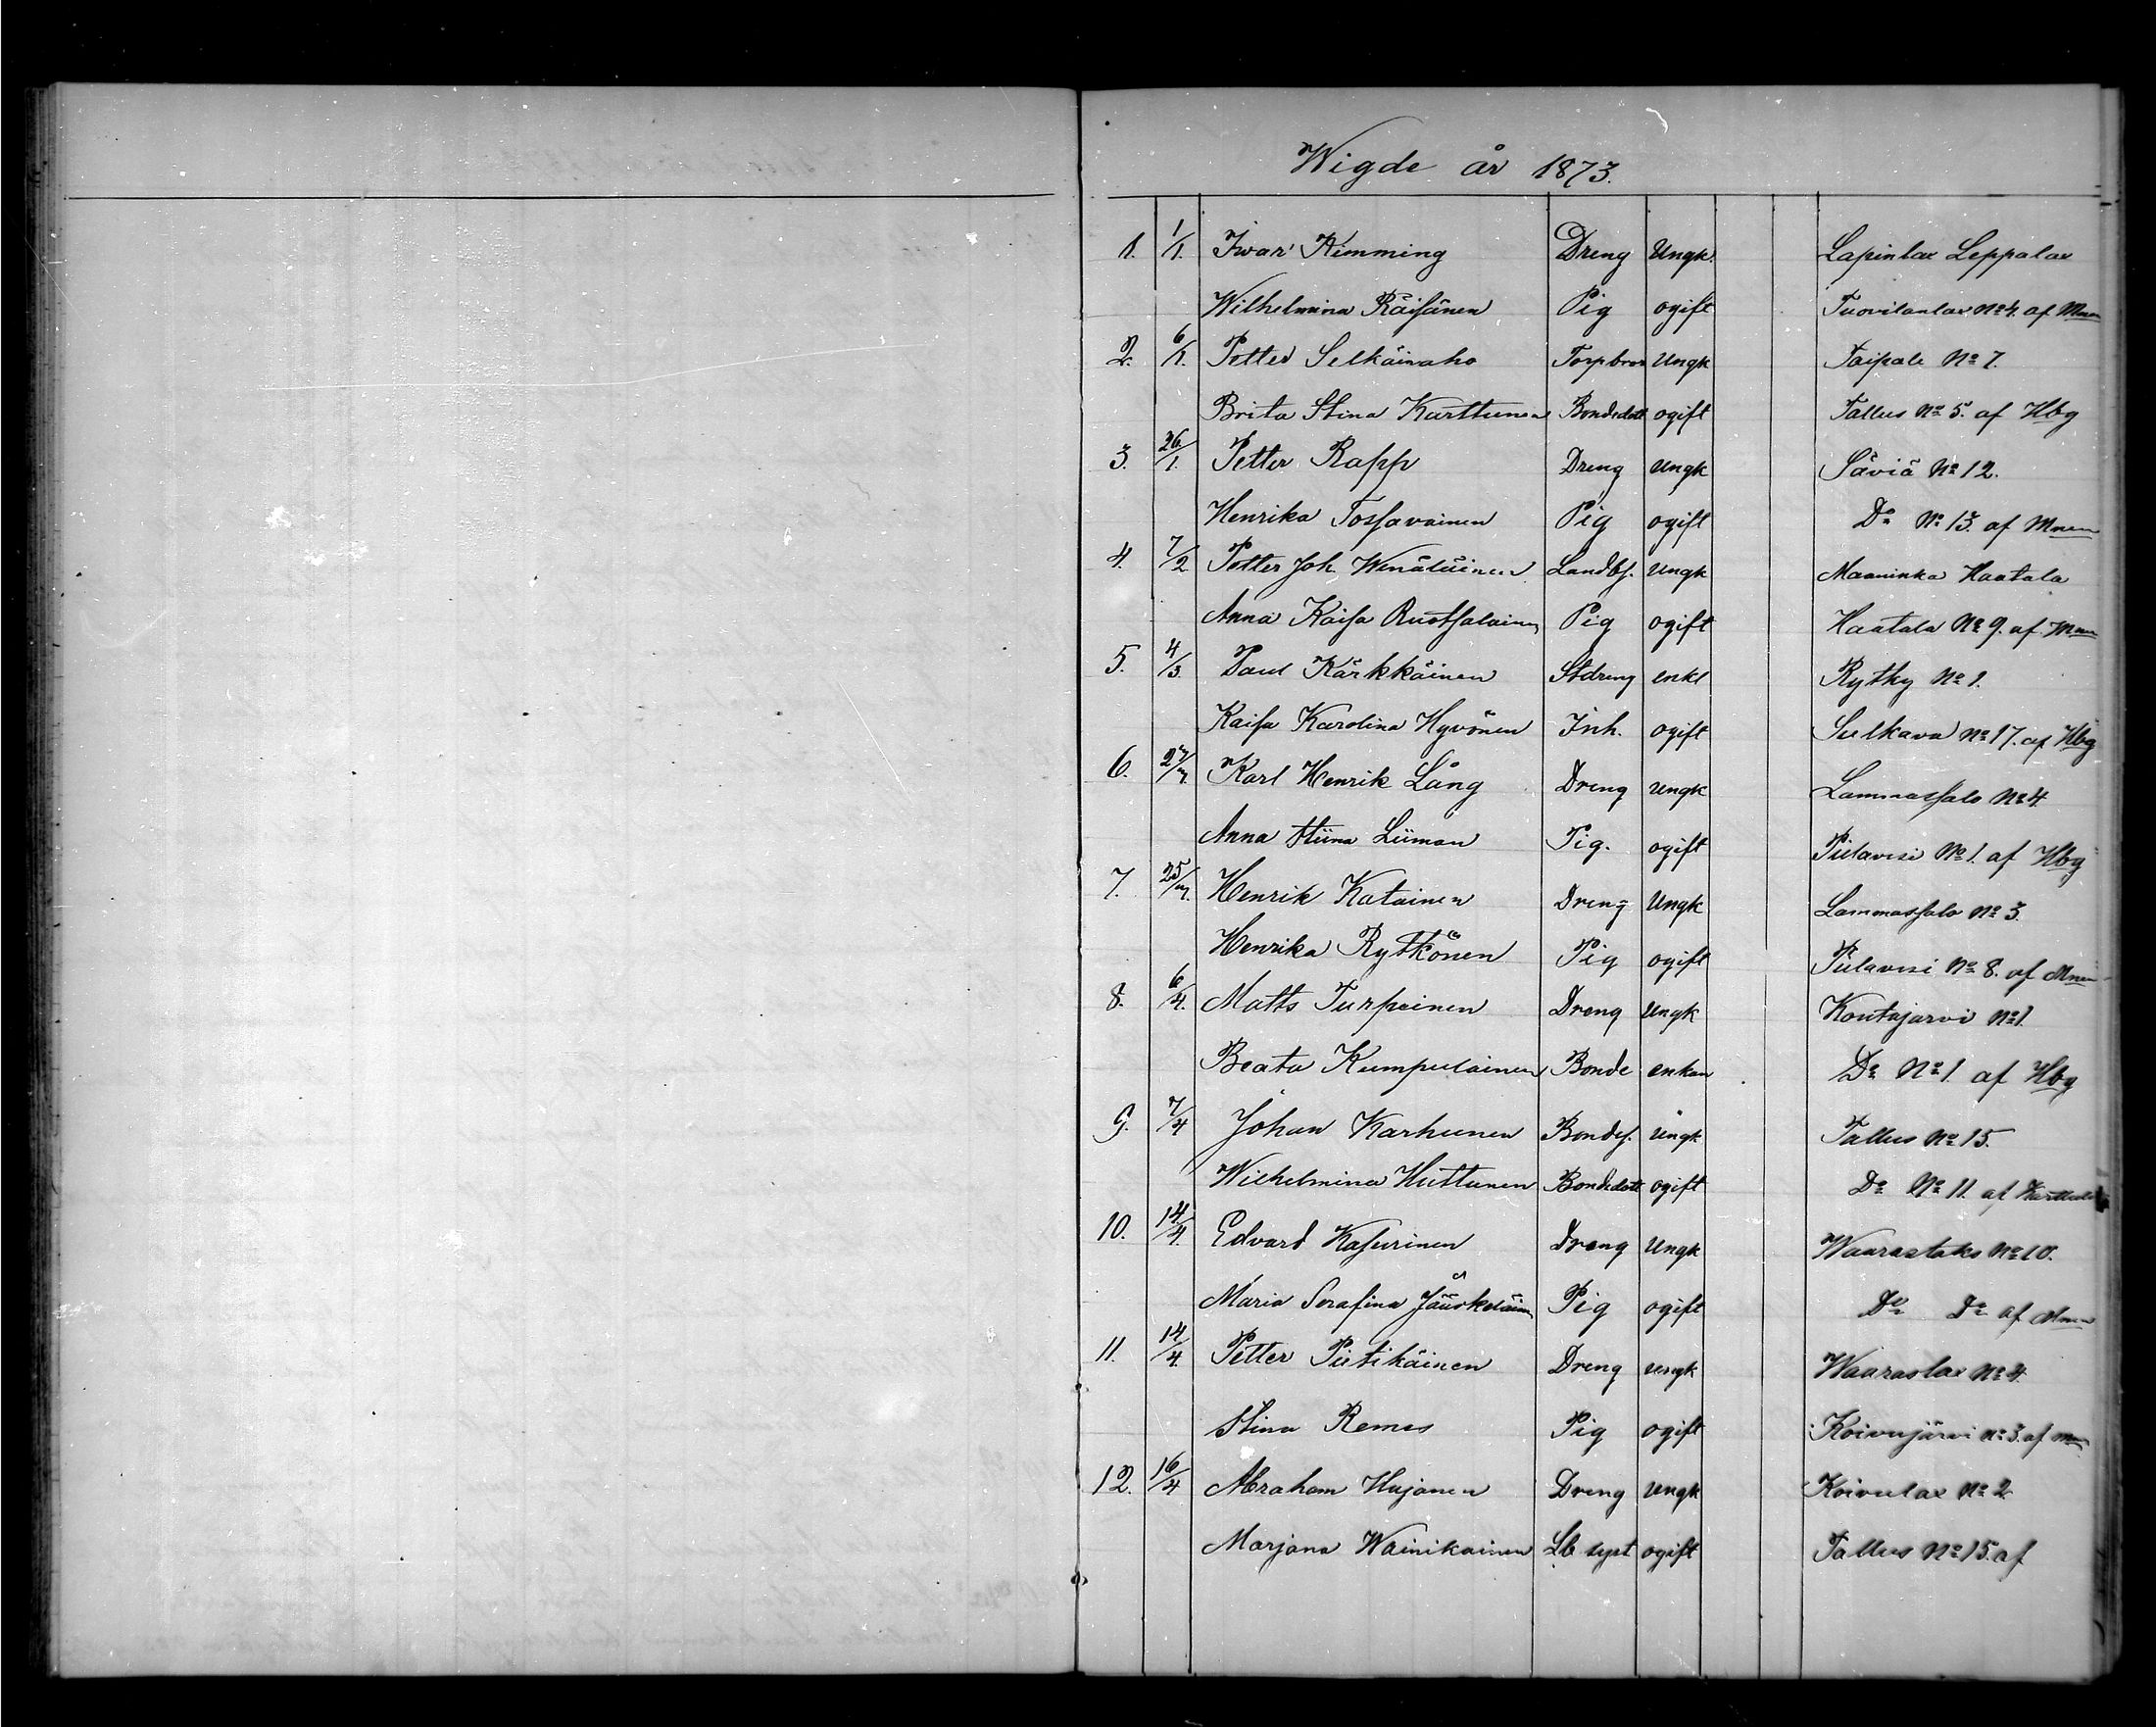 Wigde år 1873.
1. 1/1. Iwar Kimming Dreng Ungk. Lapinlax Leppalax
Wilhelmina Räisänen Pig ogift Tuovilanlax No 4. af Mnen
2. 6/1. Petter Selkäinaho Torpbror Ungk Taipale No 7.
Brita Stina Karttunen Bondedott ogift Tallus No 5. af Hbg
3. 26/1. Petter Rapp Dreng Ungk Säviä No 12.
Henrika Tossavainen Pig ogift Do No 13. af Mnen
4. 7/2 Petter Joh. Wenäläinen Landbs. Ungk Maaninka Haatala
Anna Kaisa Ruotsalainen Pig ogift Haatala No 9. af Mnen
5. 4/3. Paul Kärkkäinen Stdreng enkl Rytky No 1.
Kaisa Karolina Hyvönen Inh. ogift Sulkava No 17. af Hbg
6. Karl Henrik Lång Dreng Ungk Lammassalo No 4.
Anna Stina Liiman Pig. ogift Pielavesi No 1. af Hbg
7. Henrik Katainen Dreng Ungk Lammassalo No 3.
Henrika Rytkönen Pig ogift Pielavesi No 8. af Mnen
8. 6/4. Matts Turpeinen Dreng Ungk Koutajarvi No 1.
Beata Kumpulainen Bonde enkan Do No 1. af Hbg
9. 7/4 Johan Karhunen Bondes. Ungk Tallus No 15.
Wilhelmina Huttunen Bondedott ogift Do No 11. af Karttula
10. 14/4. Edvard Kasurinen Dreng Ungk Waarastaks No 10.
Maria Serafina Jääskeläinen Pig ogift Do Do af Mnen
11. 14/4. Petter Pietikäinen Dreng Ungk Waaraslax No 4.
Stina Remes Pig ogift Koivujärvi No 3. af Mnen
12. 16/4 Abraham Hujanen Dreng Ungk Koivulax No 2
Marjana Wainikainen Lb syst ogift Tallus No 15. af